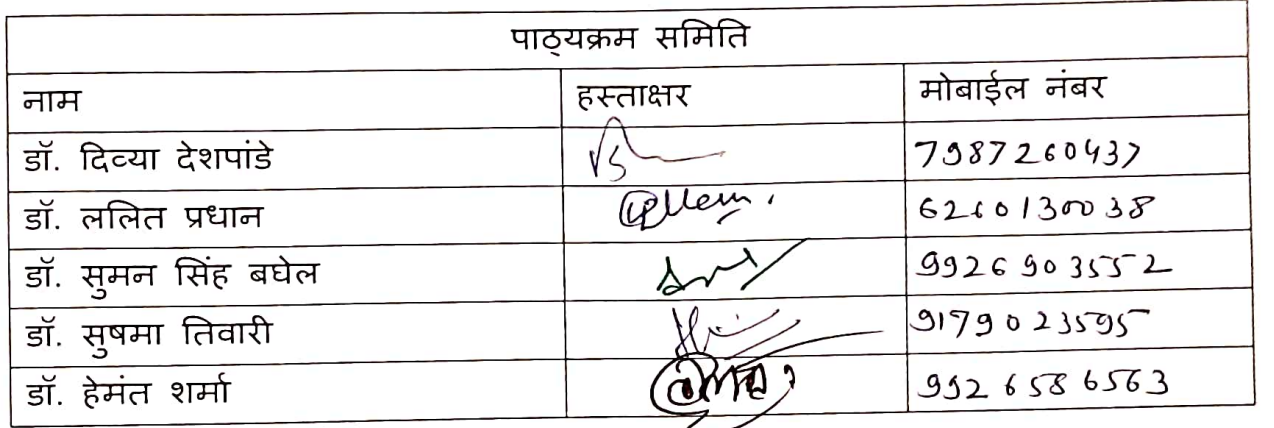 पाठ्यक्रम समिति
नाम हस्ताक्षर मोबाईल नंबर
डॉ. दिव्या देशपांडे 7987260437
डॉ. ललित प्रधान 6260130038
डॉ. सुमन सिंह बघेल 9926903552
डॉ. सुषमा तिवारी 9179023595
डॉ. हेमंत शर्मा 9926586563